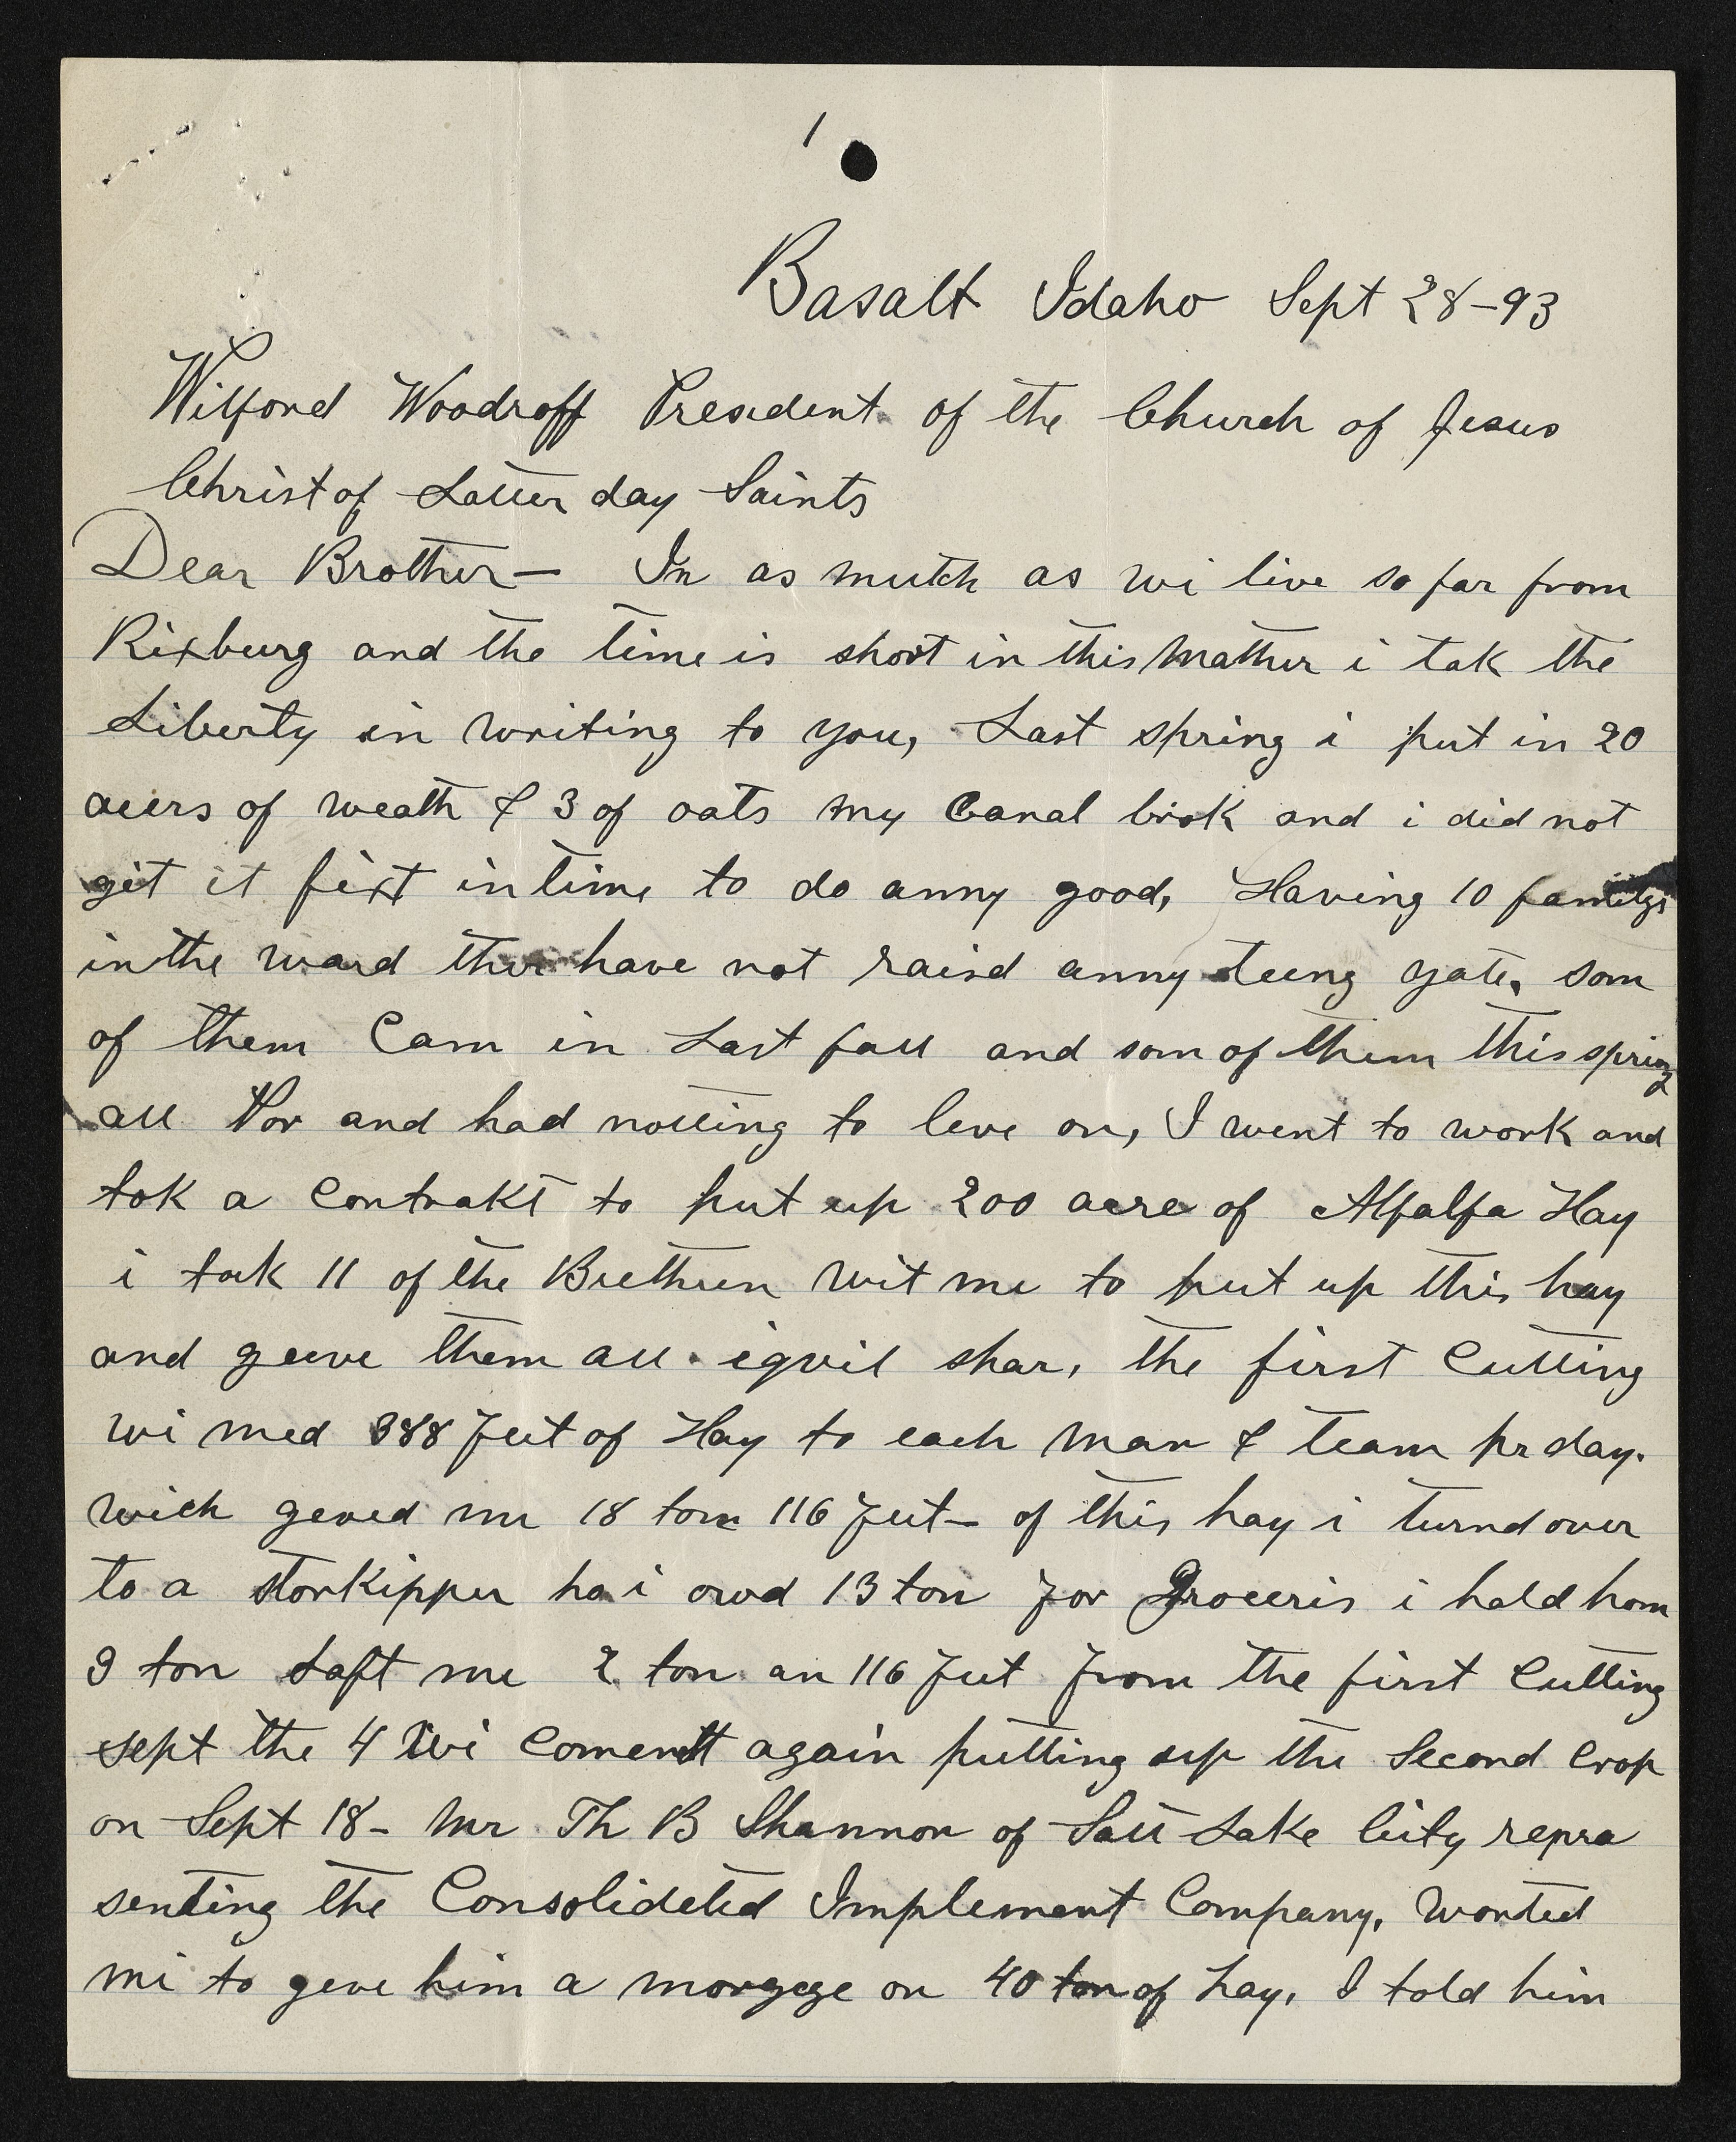 1
Basalt Idaho Sept 28-93
Wilford Woodroff Presedent of the Church of Jesus
Christ of Latter day Saints
Dear Brother— In as mutch as wi live so far from
Rixburg and the time is short in this Mather i tak the
Liberty in writing to you, Last spring i put in 20
acers of weath & 3 of oats my Canal brok and i did not
get it fixt in time to do anny good, Having 10 familys
in the ward ther have not raisd anny teeng yate, som
of them Cam in Last fall and som of them this spring
all Por and had notting to leve on, I went to work and
tok a Contrakt to put up 200 acre of Alfalfa Hay
i tok 11 of the Brethren wit me to put up this hay
and geeve them all eqvil shar, the first Cutting
wi med 388 feet of Hay to each man & team pr day.
wich geved me 18 ton 116 feet— of this hay i turnd over
to a storkipper ha i owd 13 ton for Groceris i hald hom
3 ton Laft me 2 ton an 116 feet from the first Cutting
sept the 4 wi Coment again putting up the Second Crop
on Sept 18- Mr Th B Shannon of Salt Lake City repra
senting the Consolideted Implement Company, wonted
mi to geve him a morgege on 40 ton of hay, I told him